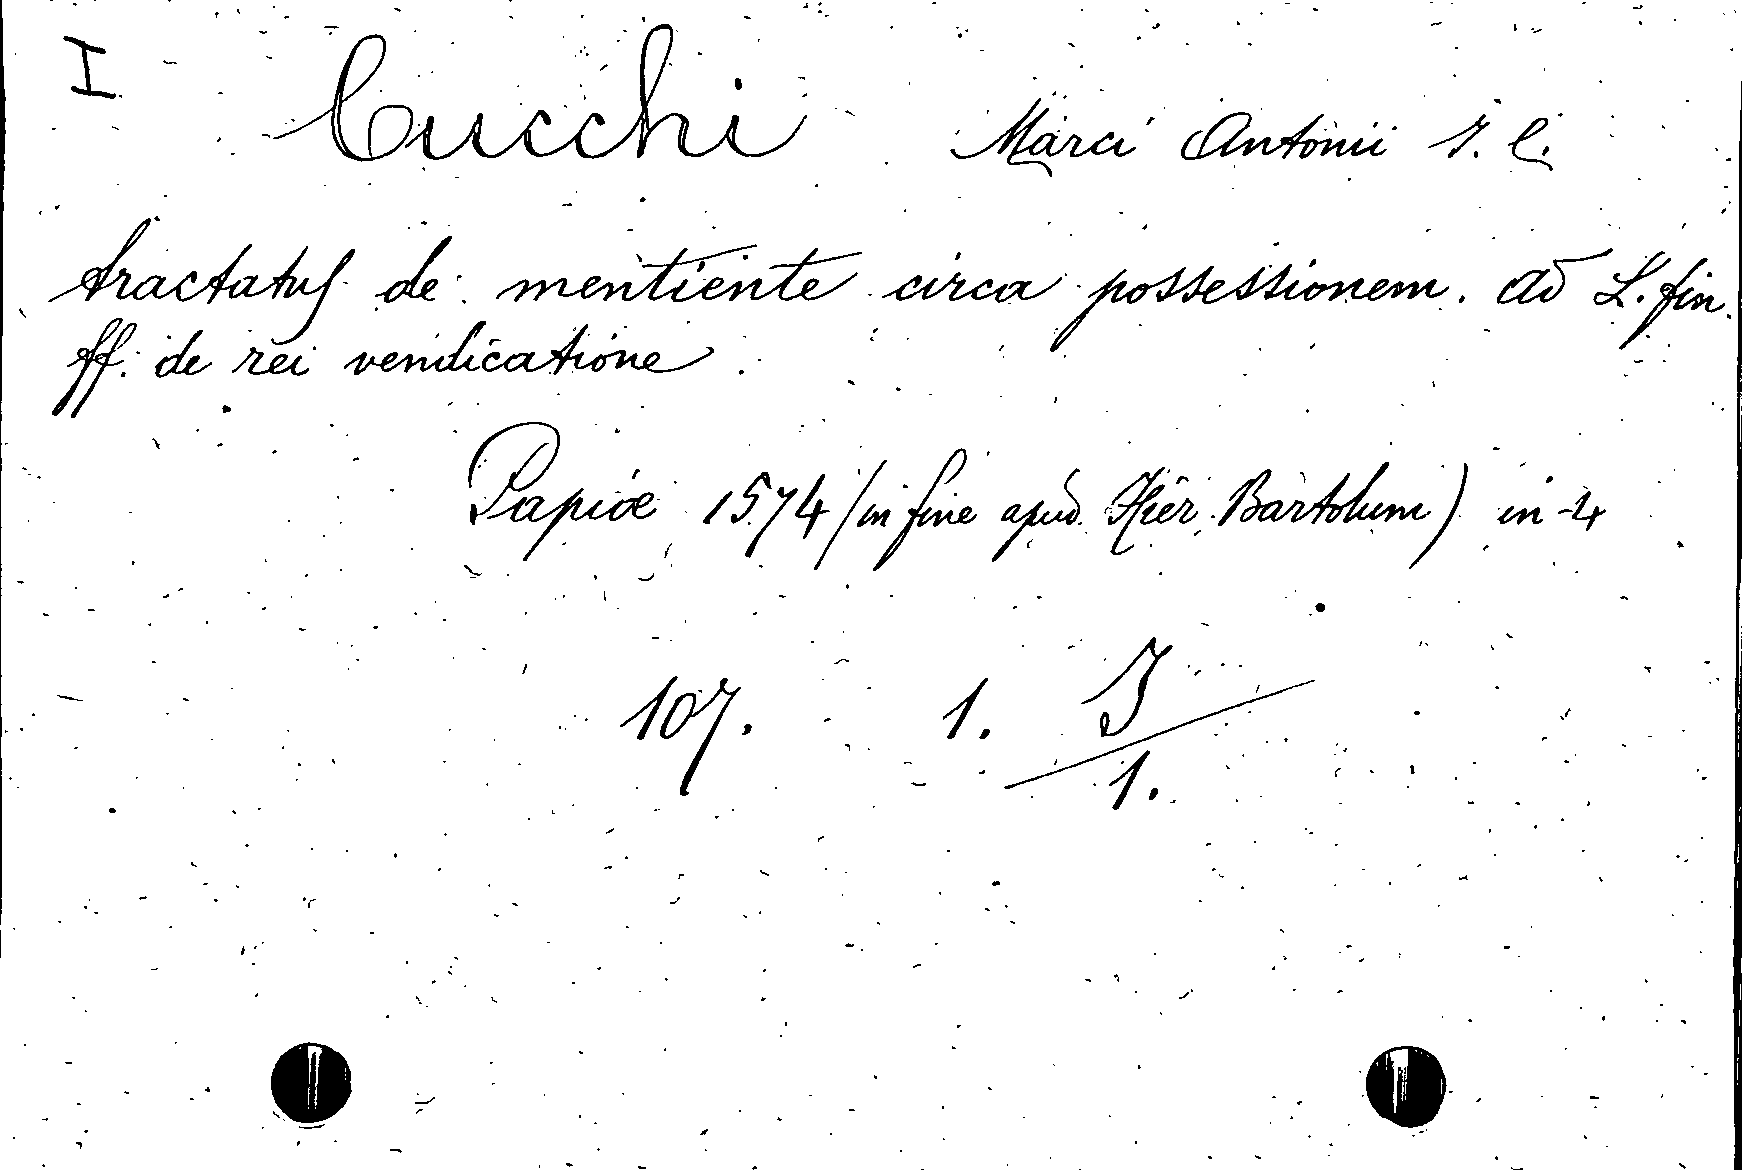 I Cucchi Marci Antonii I. C.
tractatus de mentiente circa possessionem. ad L. fin.
ff. de rei vendicatione
Papiæ 1574 (in fine apud Hier. Bartolum) in-4
107. 1. I/1.